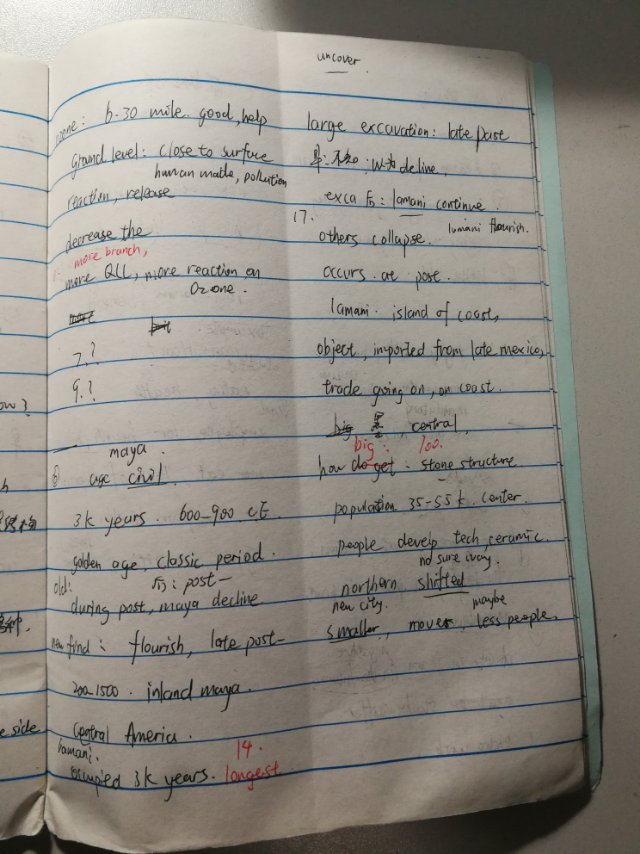 uncover
ozone: 6.30 mile. good, help
Ground level: close to surface
human made, pollution
reaction, release
decrease the
more branch,
more QLL, more reaction on
Ozone.
7.?
9.?
maya.
age civil
3k years. 600-900 CE
golden age, classic period.
old: 后: post-
during post, maya decline
new find: flourish, late post-
200-1500. inland maya
Central America.
lamani.
14.
occupied 3k years. longest
large excavation: late past
以为 deline.
exca 后: lamani continue.
17.
lumani flourish.
others collapse.
occurs at post.
lamani. island of coast,
object, imported from late mexico,
trade going on, on coast.
big 墨, central,
big: 100.
how do get: stone structure.
population 35-55k. center.
people develp tech, ceramic.
no sure way.
northern shifted
new city. maybe
smaller, mover, less people.
ow?
e side